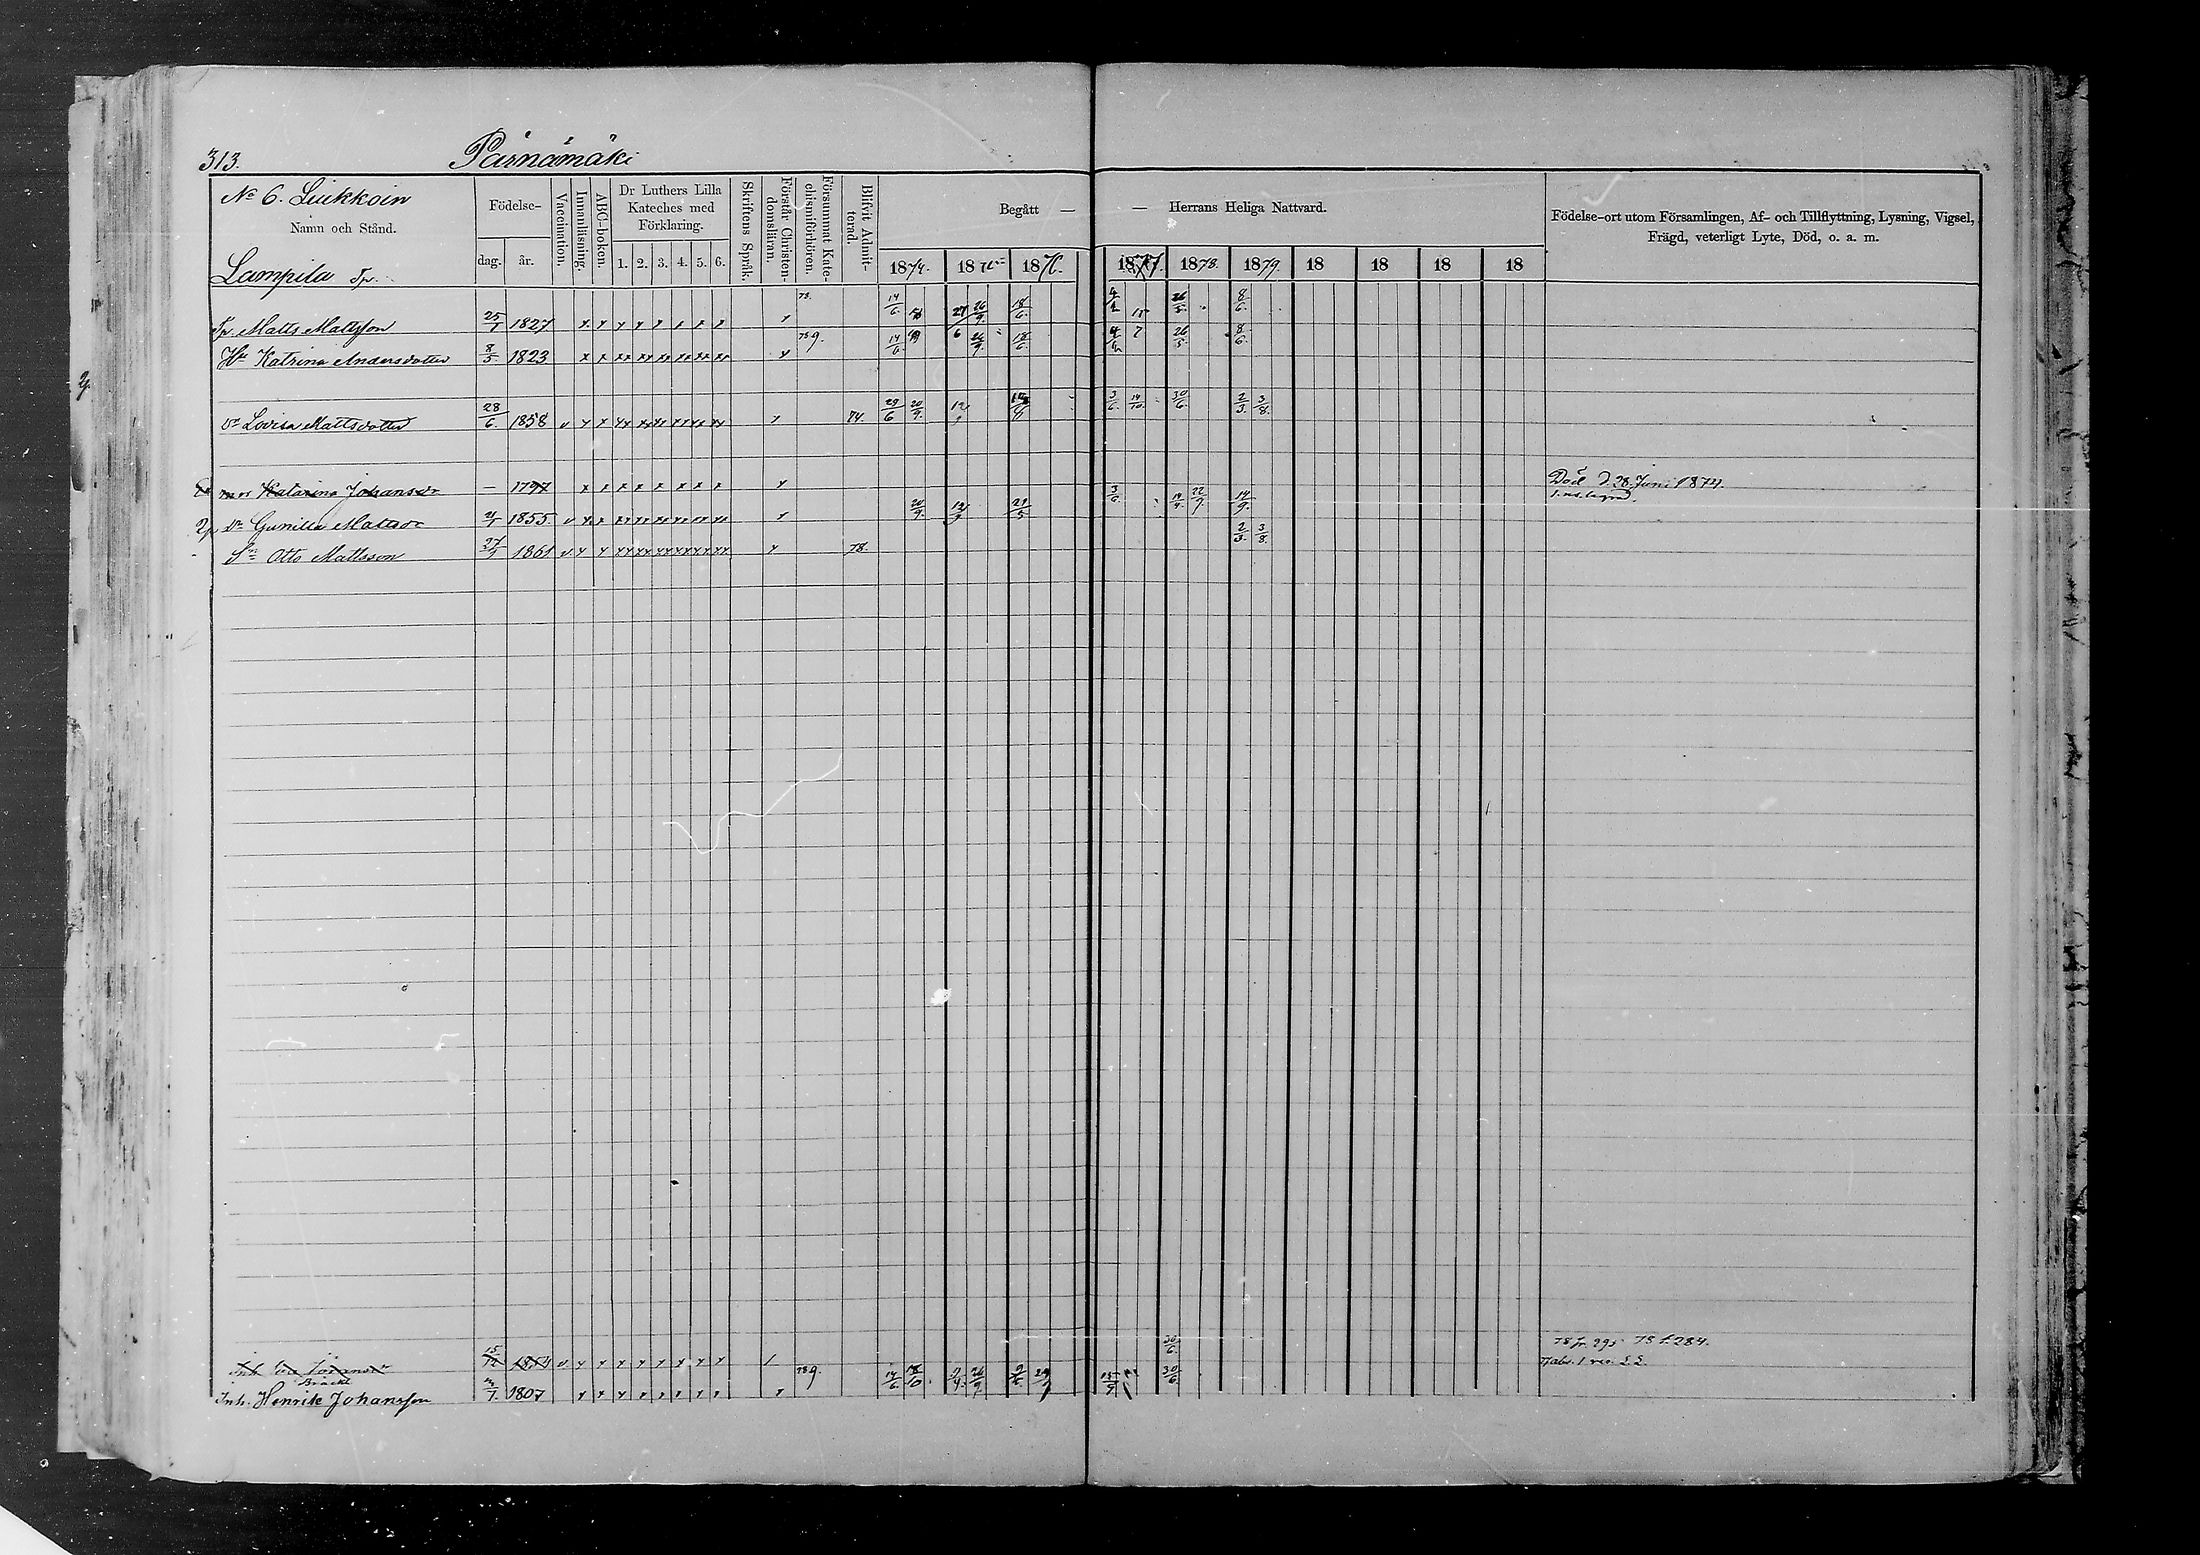 313. Pärnämäki
No 6. Liukkoin
Namn och Stånd.
Födelse-
dag. år.
Vaccination.
Innanläsning.
ABC-boken.
Dr Luthers Lilla
Kateches med
Förklaring.
1. 2. 3. 4. 5. 6.
Skriftens Språk.
Förstår Christen-
domsläran.
Försummat Kate-
chismiförhören.
Blifvit Admit-
terad.
Begått — — Herrans Heliga Nattvard.
1874. 1875 1876. 1877. 1878. 1879. 18 18 18 18
Födelse-ort utom Församlingen, Af- och Tillflyttning, Lysning, Vigsel,
Frägd, veterligt Lyte, Död, o. a. m.
Lampila Tp.
Tp. Matts Mattsson 25/1 1827 x x x x x x x x x 14/6 26/9 18/6 26/5 8/6
Hu Katrina Andersdotter 8/5 1823 x x xx xx xx xx xx xx x 14/6 26/9 18/6 26/5 8/6
Dr Lovisa Mattsdotter 28/6 1858 v x x xx xx xx xx xx xx x 74. 29/6 20/9 3/6 14/10 30/6 2/3 3/8
mor Katarina Johansdr — 1797 x x x x x x x x x Död d. 28 Juni 1874
Dr Gunilla Mattsdr 1855 v x x xx xx xx xx xx xx x 20/9 3/6 22/9 14/9
Sn Otto Mattsson 27/9 1861 v x x xx xx xx xx xx xx x 78. 2/3 3/8
Inh Eva Johansdr 15/12 1814 v x x x x x x x x 30/6 78 fr. 295 78 f. 284.
Bräcki
Inh. Henrik Johansson 1807 x x x x x x x x x 14/6 18/10 26/9 30/6